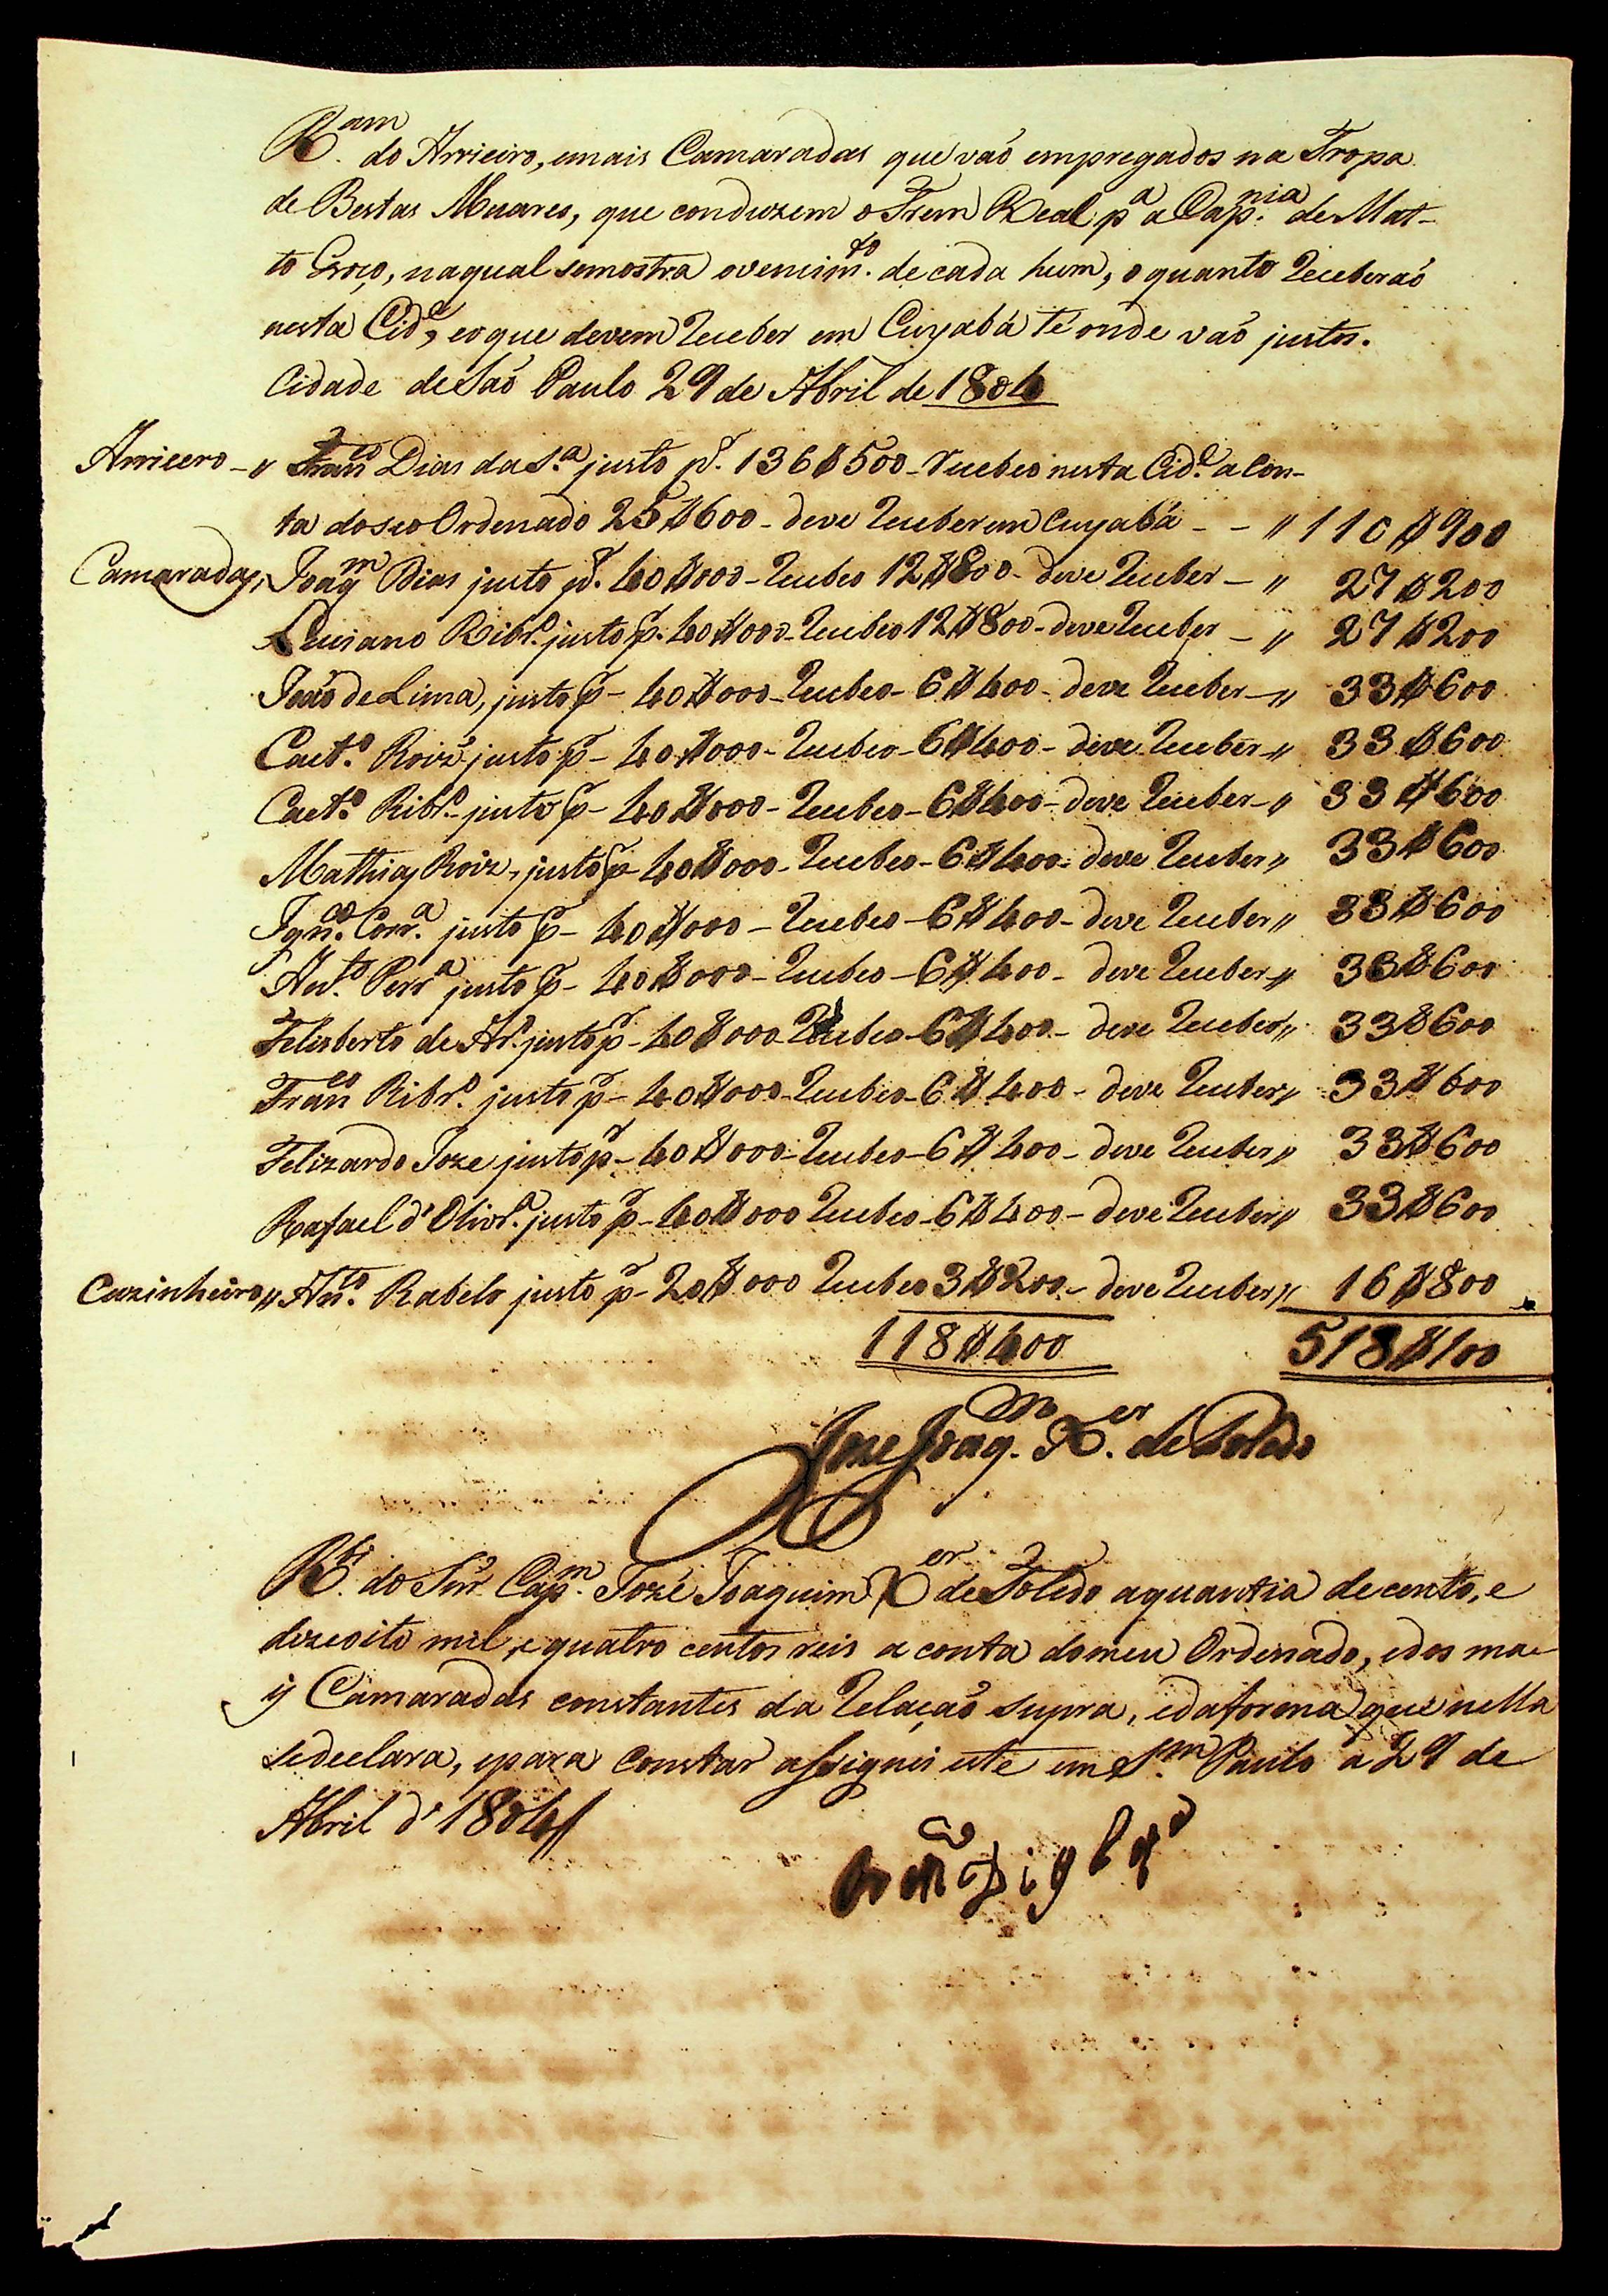 R.am do Arrieiro, emais Camaradas que vaõ empregados na Tropa
de Bestas Muares, que conduzem o Trem Real p.a a Cap.nia de Mat-
to Groço, naqual semostra ovencim.to de cada hum, o quanto receberaõ
nesta Cid.e, eoque devem receber em Cuyabá té onde vaõ justos.
Cidade de Saõ Paulo 29 de Abril de 1804
Arrieero - " Fran.co Dias da S.a justo p.r 136$500 - recebeo nesta Cid.e a Con-
ta doseo Ordenado 25$600 - deve receber em Cuyabá - - " 110$900
Camaradas, Joaq.m Dias justo p.r 40$000 - recebeo 12$800 - deve receber - " 27$200
Luciano Ribr.o justo p.r 40$000 - recebeo 12$800 - deve receber - " 27$200
Joaõ de Lima, justo p.r - 40$000 - recebeo - 6$400 - deve receber - " 33$600
Caet.o Roiz justo p.r - 40$000 - recebeo - 6$400 - deve receber - " 33$600
Caet.o Ribr.o justo p.r - 40$000 - recebeo - 6$400 - deve receber - " 33$600
Mathias Roiz, justo p.r - 40$000 - recebeo - 6$400 - deve receber " 33$600
Ign.co Corr.a justo p.r - 40$000 - recebeo - 6$400 - deve receber " 33$600
Ant.o Perr.a justo p.r - 40$000 - recebeo - 6$400 - deve receber - " 33$600
Felisberto de Ar.o justo p.r - 40$000 recebeo - 6$400 - deve receber " 33$600
Fran.co Ribr.o justo p.r - 40$000 - recebeo - 6$400 - deve receber " 33$600
Felizardo Joze justo p.r - 40$000 - recebeo - 6$400 - deve receber " 33$600
Rafael d'Olivr.a justo p.r - 40$000 recebeo - 6$400 - deve receber " 33$600
Cuzinheiro " Ant.o Rabelo justo p.r - 20$000 recebeo 3$200 - deve receber " 16$800
118$400 518$100
Jose Joaq.m X.er de Toledo
R.bi do Snr. Cap.m Jozé Joaquim X.er de Toledo aquantia de cento, e
dezeoito mil, e quatro centos reis a conta domeu Ordenado, edos ma-
is Camaradas constantes da relaçaõ supra, edaforma que nella
sedeclara, epara constar assignei este em S.m Paulo a 29 de
Abril d'1804